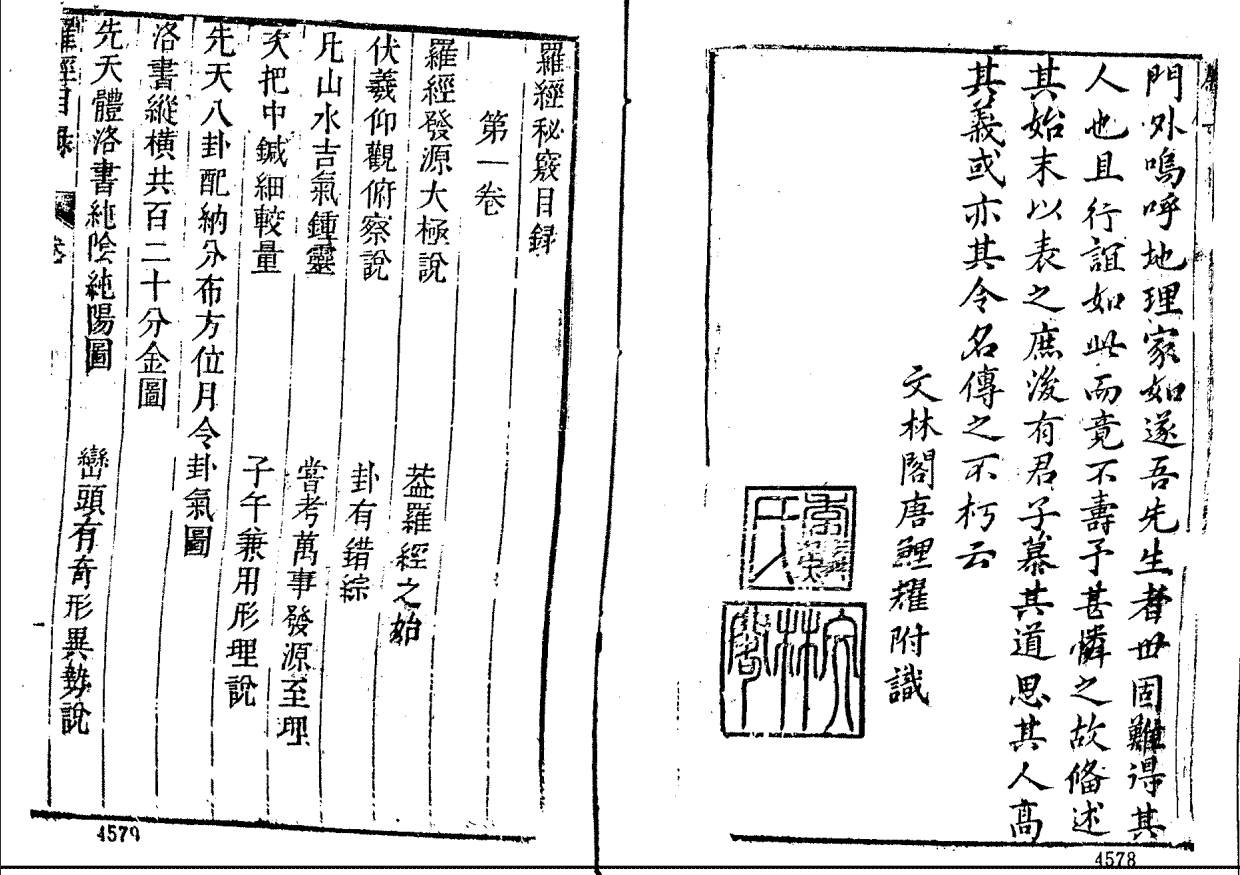 門外嗚呼地理家如遂吾先生者世固難得其
人也且行誼如此而竟不壽予甚憐之故俻述
其始末以表之庶後有君子慕其道思其人高
其義或亦其令名傳之不朽云
文林閣唐鯉耀附識
4578
羅經秘竅目録
第一卷
羅經發源大極説 葢羅經之始
伏羲仰觀俯察説 卦有錯綜
凡山水吉氣鍾靈 嘗考萬事發源至理
次把中鍼細較量 子午兼用形理説
先天八卦配納分布方位月令卦氣圖
洛書縱橫共百二十分金圖
先天體洛書純陰純陽圖 巒頭有奇形異勢説
羅經目錄 卷
4579